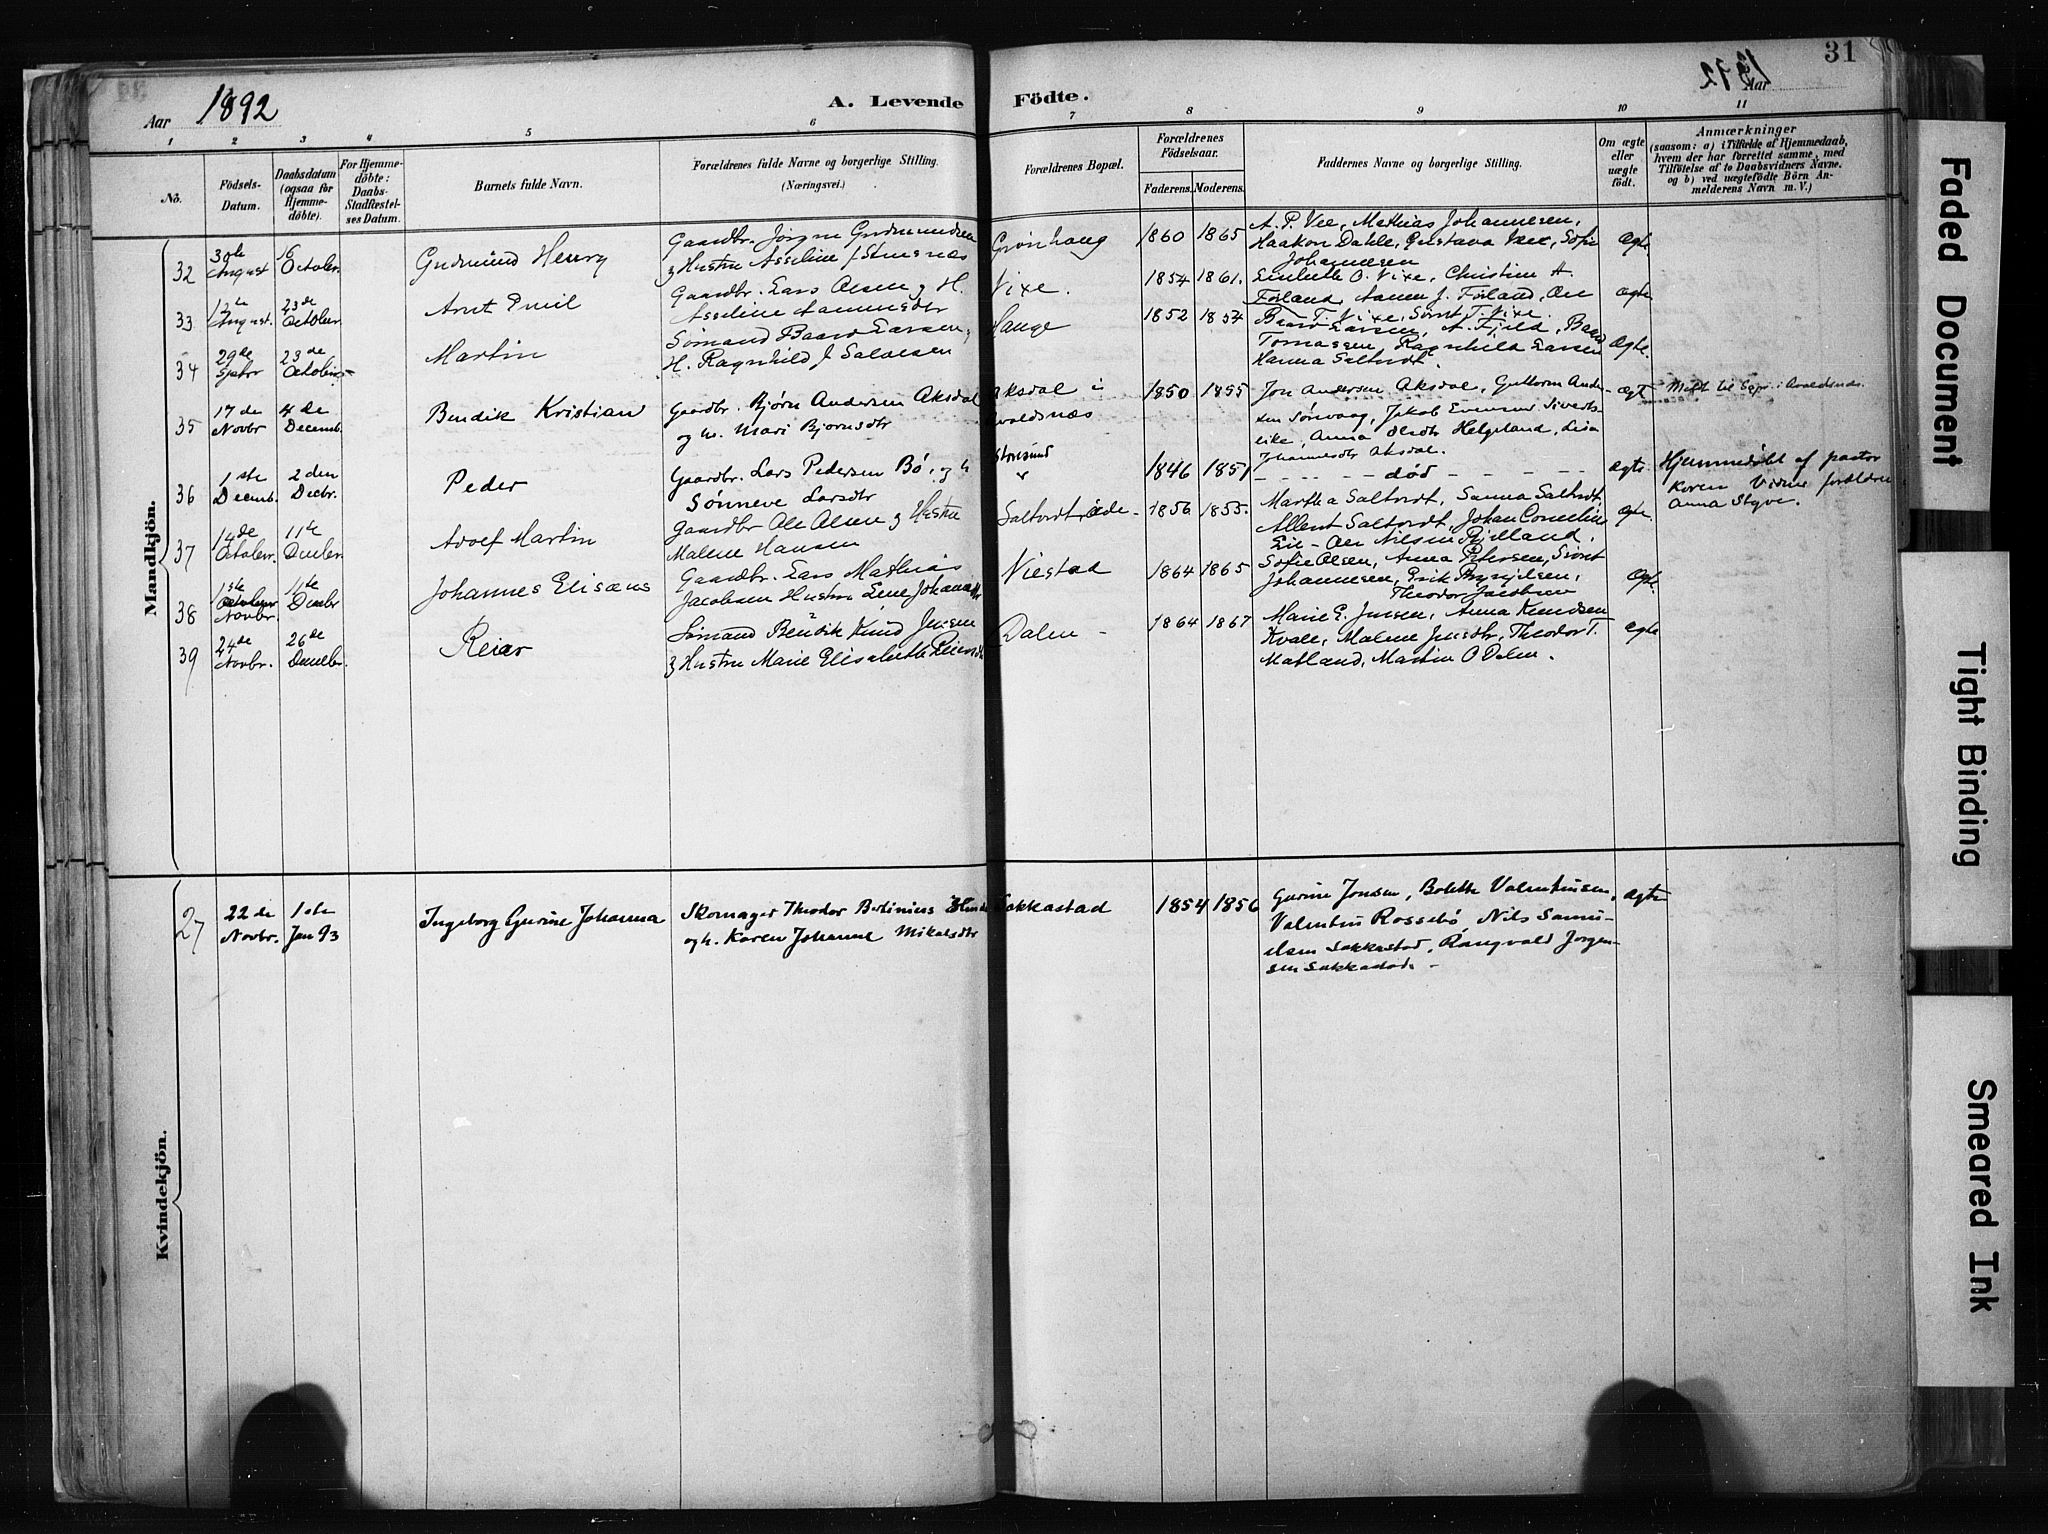 31
Aar 1892
A. Levende Födte.
Aar 1892
1 2 3 4 5 6 7 8 9 10 11
No.
Födsels-
Datum.
Daabsdatum
(ogsaa for
Hjemme-
döbte).
For Hjemme-
döbte:
Daabs-
Stadfæstel-
ses Datum.
Barnets fulde Navn.
Forældrenes fulde Navne og borgerlige Stilling.
(Næringsvei.)
Forældrenes Bopæl.
Forældrenes
Födselsaar.
Faderens. Moderens.
Faddernes Navne og borgerlige Stilling.
Om ægte
eller
uægte
födt.
Anmærkninger
(saasom: a) i Tilfælde af Hjemmedaab,
hvem der har forrettet samme, med
Tilföielse af to Daabsvidners Navne.
og b) ved uægtefödte Börn An-
melderens Navn m. V.)
Mandkjön.
32
30te
August
16
October
Gudmund Henry
Gaardbr. Jørgen Gudmundsen
& Hustru Asseline
Grønhaug
1860 1865
A. P. Vee, Mathias Johannesen,
Haakon Dahle, Gustava Vee, Sofie
Johannesen
Ægte
33
12te
August.
23de
October
Arnt Emil
Gaardbr. Lars Olsen & H.
Asseline
Vixe.
1854 1861.
Lisbeth O. Vixe, Christine A
Førland, J. Førland, Ole
T. Vixe, Sivert T. Vixe.
Ægte
34
29de
23de
October
Martin
Sømand Baard Larsen &
H. Ragnhild J Salvesen
Hauge
1852 1854
Baard Larsen, A. Fjeld, Baard
Tomassen, Ragnhild Larsen
Hanna Saltvedt.
Ægte.
35
17de
Novbr
4de
Decemb.
Bendik Kristian
Gaardbr. Bjørn Andersen Aksdal
og h. Mari Bjornsdtr
Aksdal i
Avaldsnæs
1850 1855
Jon Andersen Aksdal, Guttorm Ander-
sen Sønvaag, Jakob Evensen Siverts-
eike, Anna Olsdtr Helgeland, Lisa
Johannesdtr Aksdal.
ægte
Meldt til Sgpr. i Avaldsnæs.
36
1ste
Decemb.
2den
Decbr.
Peder
Gaardbr. Lars Pedersen Bø. og h
Sønneve Larsdtr
Storesund
1846 1851
- - - - - død - - - - -
ægte
Hjemmedøbt af pastor
Koren Vidner forældrene
Anna Styve.
37
14de
October
11te
Adolf Martin
Gaardbr Ole Olsen & Hustru
Malene Hansen
1856 1855.
Martha Saltvedt, Sanna Saltvedt,
Saltvedt, Johan Cornelius
Eie - Ole Nilsen Rjelland.
ægte.
38
1ste
Novbr
11te
Johannes Elisæus
Gaardbr. Lars Mathias
Jacobsen Hustru Lene
Viestad
1864 1865
Sofie Olsen, Anna Petersen, Sivert
Johannesen, Erik
Theodor Jacobsen
Ægte.
39
24de
Novbr.
26de
Reier
Sømand Bendik Knud Jensen
& Hustru Marie Elisabeth
Dalen -
1864 1867
Marie E. Jensen, Anna Knudsen
Kvale, Malene Jensdtr, Theodor T.
Matland, Martin O Dalen.
ægte
Kvindekjön.
27
22de
Novbr.
1ste
Jan 93
Ingeborg Gurine Johanna
Skomager Theodor Berlinius
og h. Karen Johanne Mikalsdtr
Sakkastad
1854 1856
Gurine Jonsen, Bolette Valentinsen,
Valentin Rossebø Nils Samu-
elsen Sakkastad, Rangvald Jørgen-
sen Sakkastad. -
ægte
Faded Document
Tight Binding
Smeared Ink